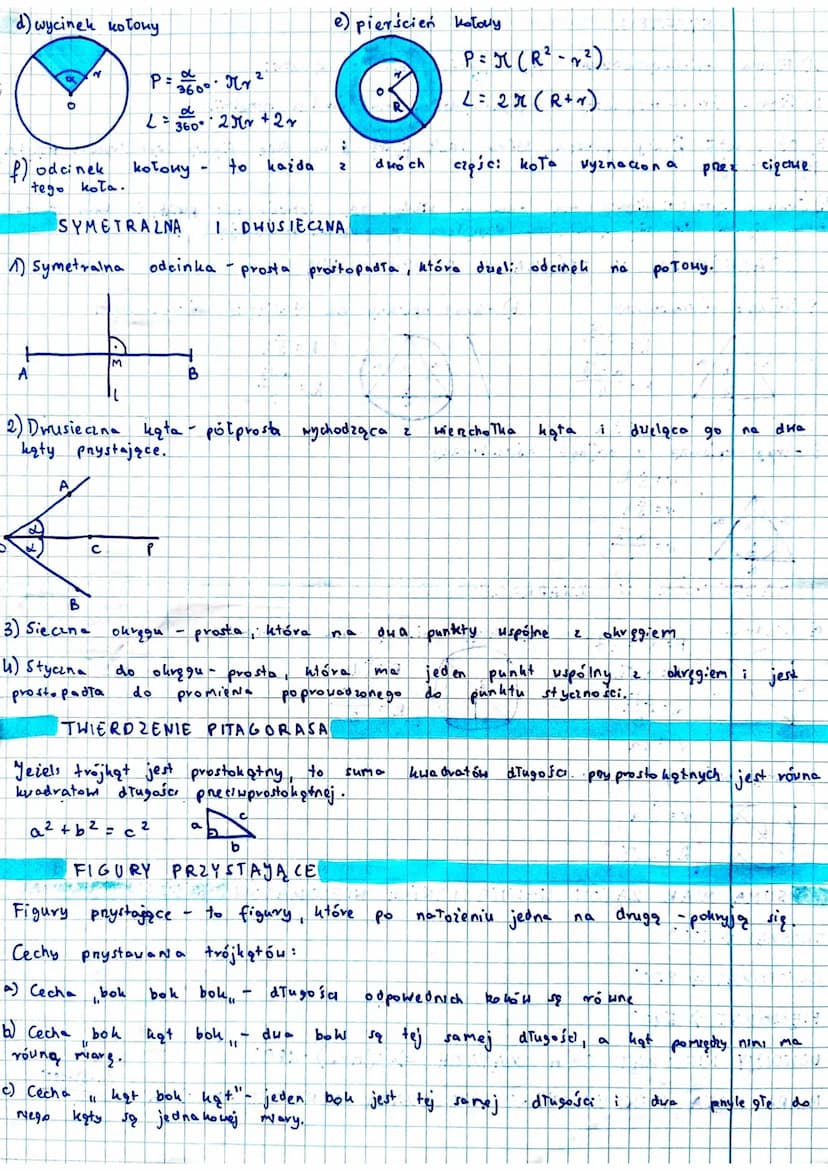 d) wycinek kołowy
α
r
O
P = α/360° · πr²
L = α/360° · 2πr + 2r
e) pierścień kołowy
r
O
R
P = π (R² - r²)
L = 2π (R+r)
f) odcinek kołowy - to każda z dwóch części koła wyznaczona przez cięciwę
tego koła.
SYMETRALNA I DWUSIECZNA
1) Symetralna odcinka - prosta prostopadła, która dzieli odcinek na połowy.
A M B
l
2) Dwusieczna kąta - półprosta wychodząca z wierzchołka kąta i dzieląca go na dwa
kąty przystające.
A
α
α
C P
B
3) Sieczna okręgu - prosta, która na dwa punkty wspólne z okręgiem
4) Styczna do okręgu - prosta, która ma jeden punkt wspólny z okręgiem i jest
prostopadła do promienia poprowadzonego do punktu styczności.
TWIERDZENIE PITAGORASA
Jeżeli trójkąt jest prostokątny, to suma kwadratów długości przyprostokątnych jest równa
kwadratowi długości przeciwprostokątnej.
a² + b² = c²
a
c
b
FIGURY PRZYSTAJĄCE
Figury przystające - to figury, które po nałożeniu jedna na drugą - pokryją się.
Cechy przystawania trójkątów:
a) Cecha „bok bok bok„ - długości odpowiednich boków są równe
b) Cecha „bok kąt bok„ - dwa boki są tej samej długości, a kąt pomiędzy nimi ma
równą miarę.
c) Cecha „kąt bok kąt" - jeden bok jest tej samej długości i dwa przyległe do
niego kąty są jednakowej miary.